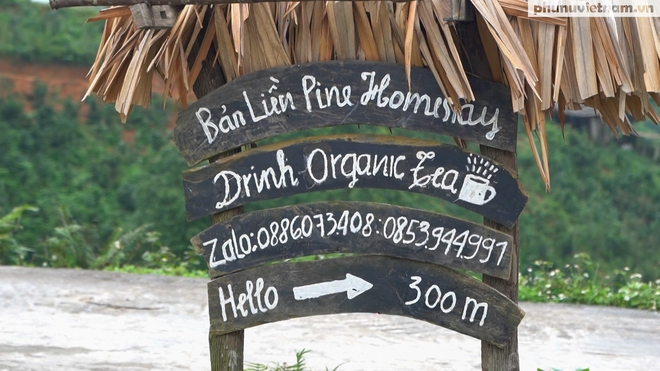 phunuvietnam.vn
Bản Liền Pine Homestay
Drink Organic Tea
Zalo:0886.073.408:0853.944.991
Hello → 300m